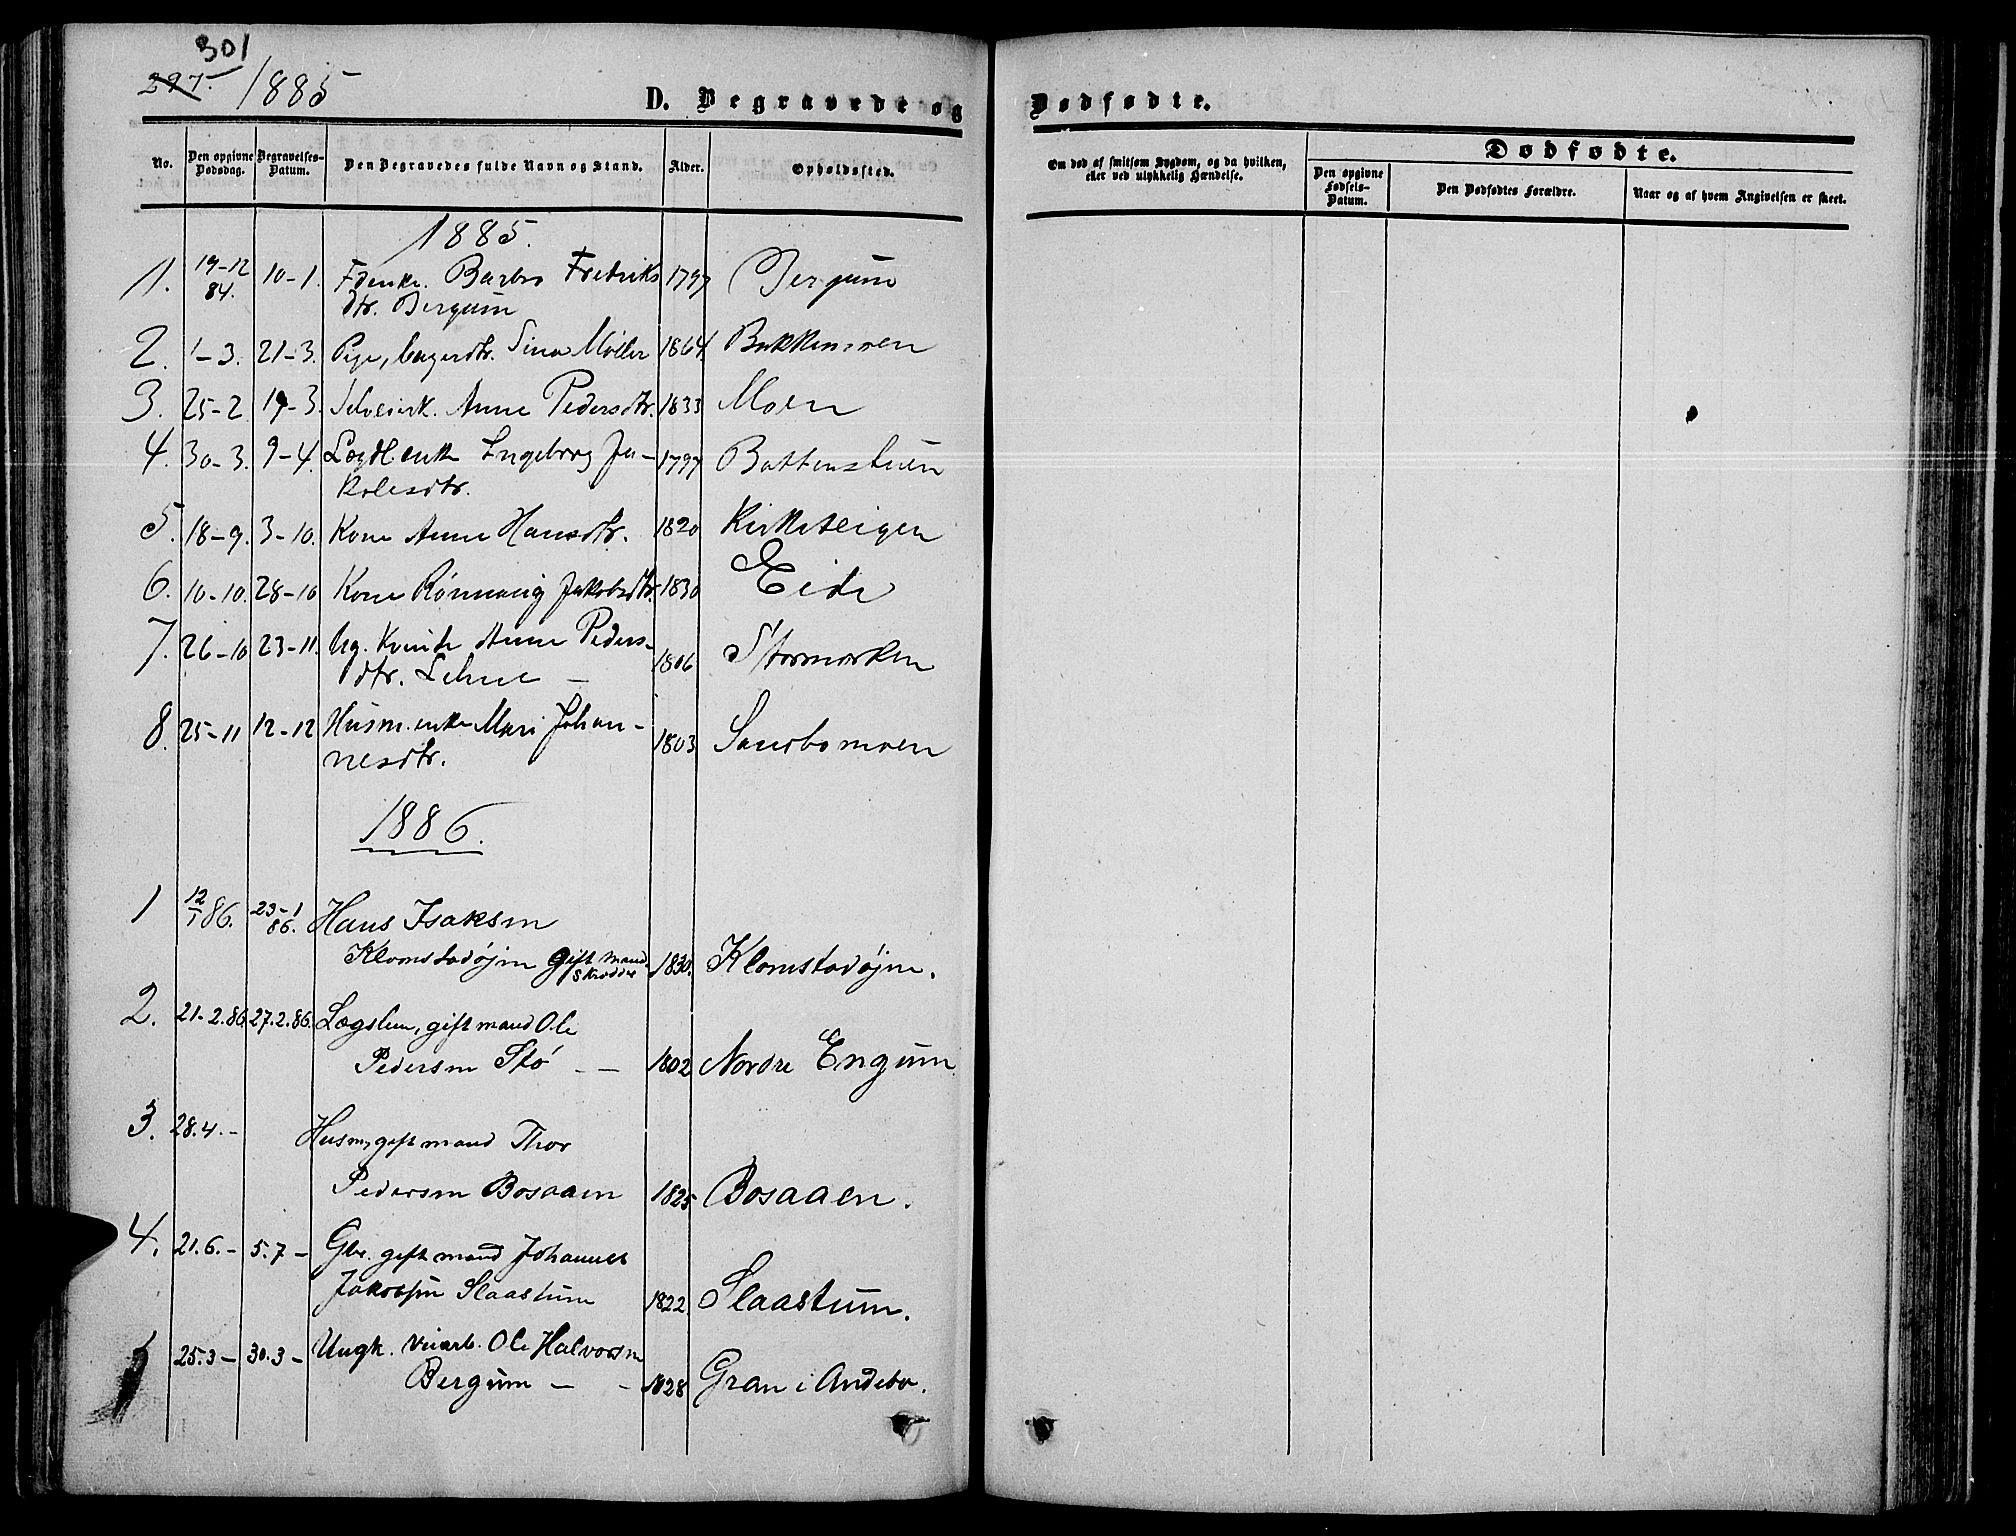 301
297.
1885
D. Begravede og Dødfødte.
No.
Den opgivne Dødsdag.
Begravelses-Datum.
Den Begravedes fulde Navn og Stand.
Alder.
Opholdssted.
Om død af smitsom Sygdom, og da hvilken, eller ved ulykkelig Hændelse.
Dødfødte.
Den opgivne Fødsels-Datum.
Den Dødfødtes Forældre.
Naar og af hvem Angivelsen er skeet.
1885.
1. 19-12 84. 10-1. Fdenke. Barbro Fredriks 1797 Bergum
dtr. Bergum
2. 1-3. 21-3. Pige, Sina Møller 1864 Bakkemoen
3. 25-2. 19-3. Selveierk. Anne Pedersdtr. 1833 Moen
4. 30-3. 9-4. Lægdlenke Ingeborg Ja- 1797 Bottenstuen
kobsdtr.
5. 18-9. 3-10. Kone Anne Hansdtr. 1820 Kirketeigen
6. 10-10. 28-10 Kone Rønnaug Jakobsdtr. 1830 Eide
7. 26-10 23-11. Ug. Kvinde Anne Peders-
dtr. Lehne — 1806 Stormorken
8. 25-11 12-12 Husm.enke Mari Johan- 1803 Sandbomoen
nesdtr.
1886.
1 12/1 86. 23-1 86. Hans Isaksen
Klomstadøjen gift mand Skrædder 1830. Klomstadøjen.
2. 21.2.86 27.2.86. Lægslem, gift mand Ole
Pedersen Stø — — 1802 Nordre Engum
3. 28.4.- Husm, gift mand Thor
Pedersen Bosaaen 1825 Bosaaen.
4. 21.6.- 5.7- Gbr. gift mand Johannes
Jakobsen Slaastum 1822 Slaastum.
5 25.3- 30.3- Ungk. veiarb. Ole Halvorsen
Bergum — - 1828 Gran i Andebo.